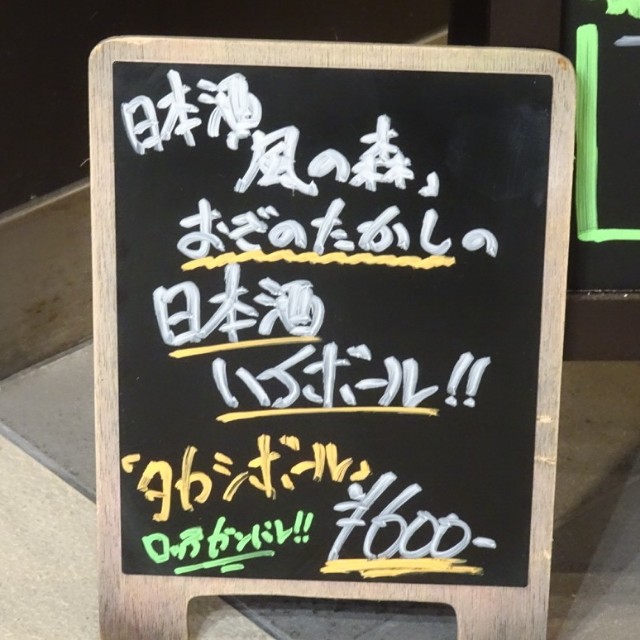 日本酒
風の森」
おぞのたかしの
日本酒
ハイボール!!
「タカシボール」
¥600-